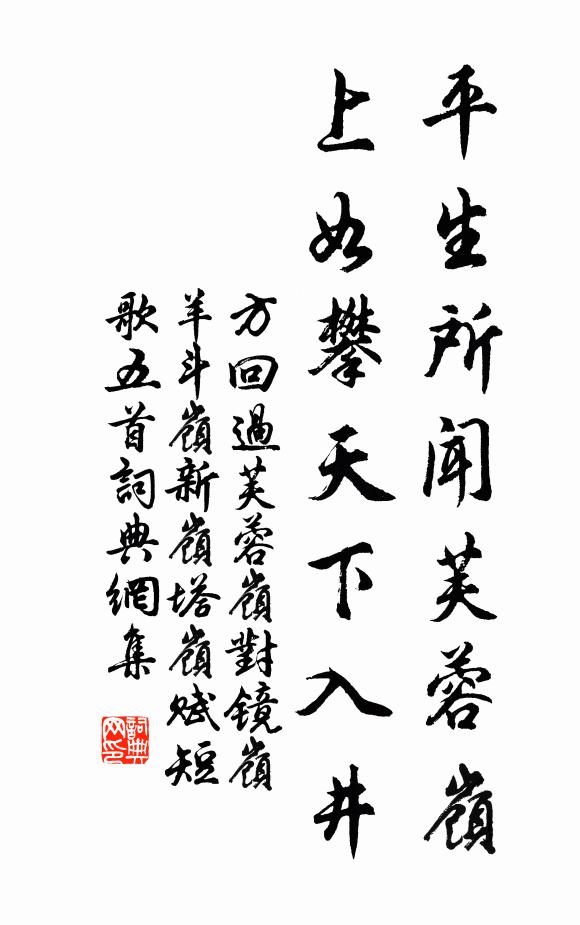 平生所聞芙蓉嶺
上如攀天下入井
方回過芙蓉嶺對鏡嶺
羊斗嶺新嶺塔嶺賦短
歌五首詞典網集
詞典网印